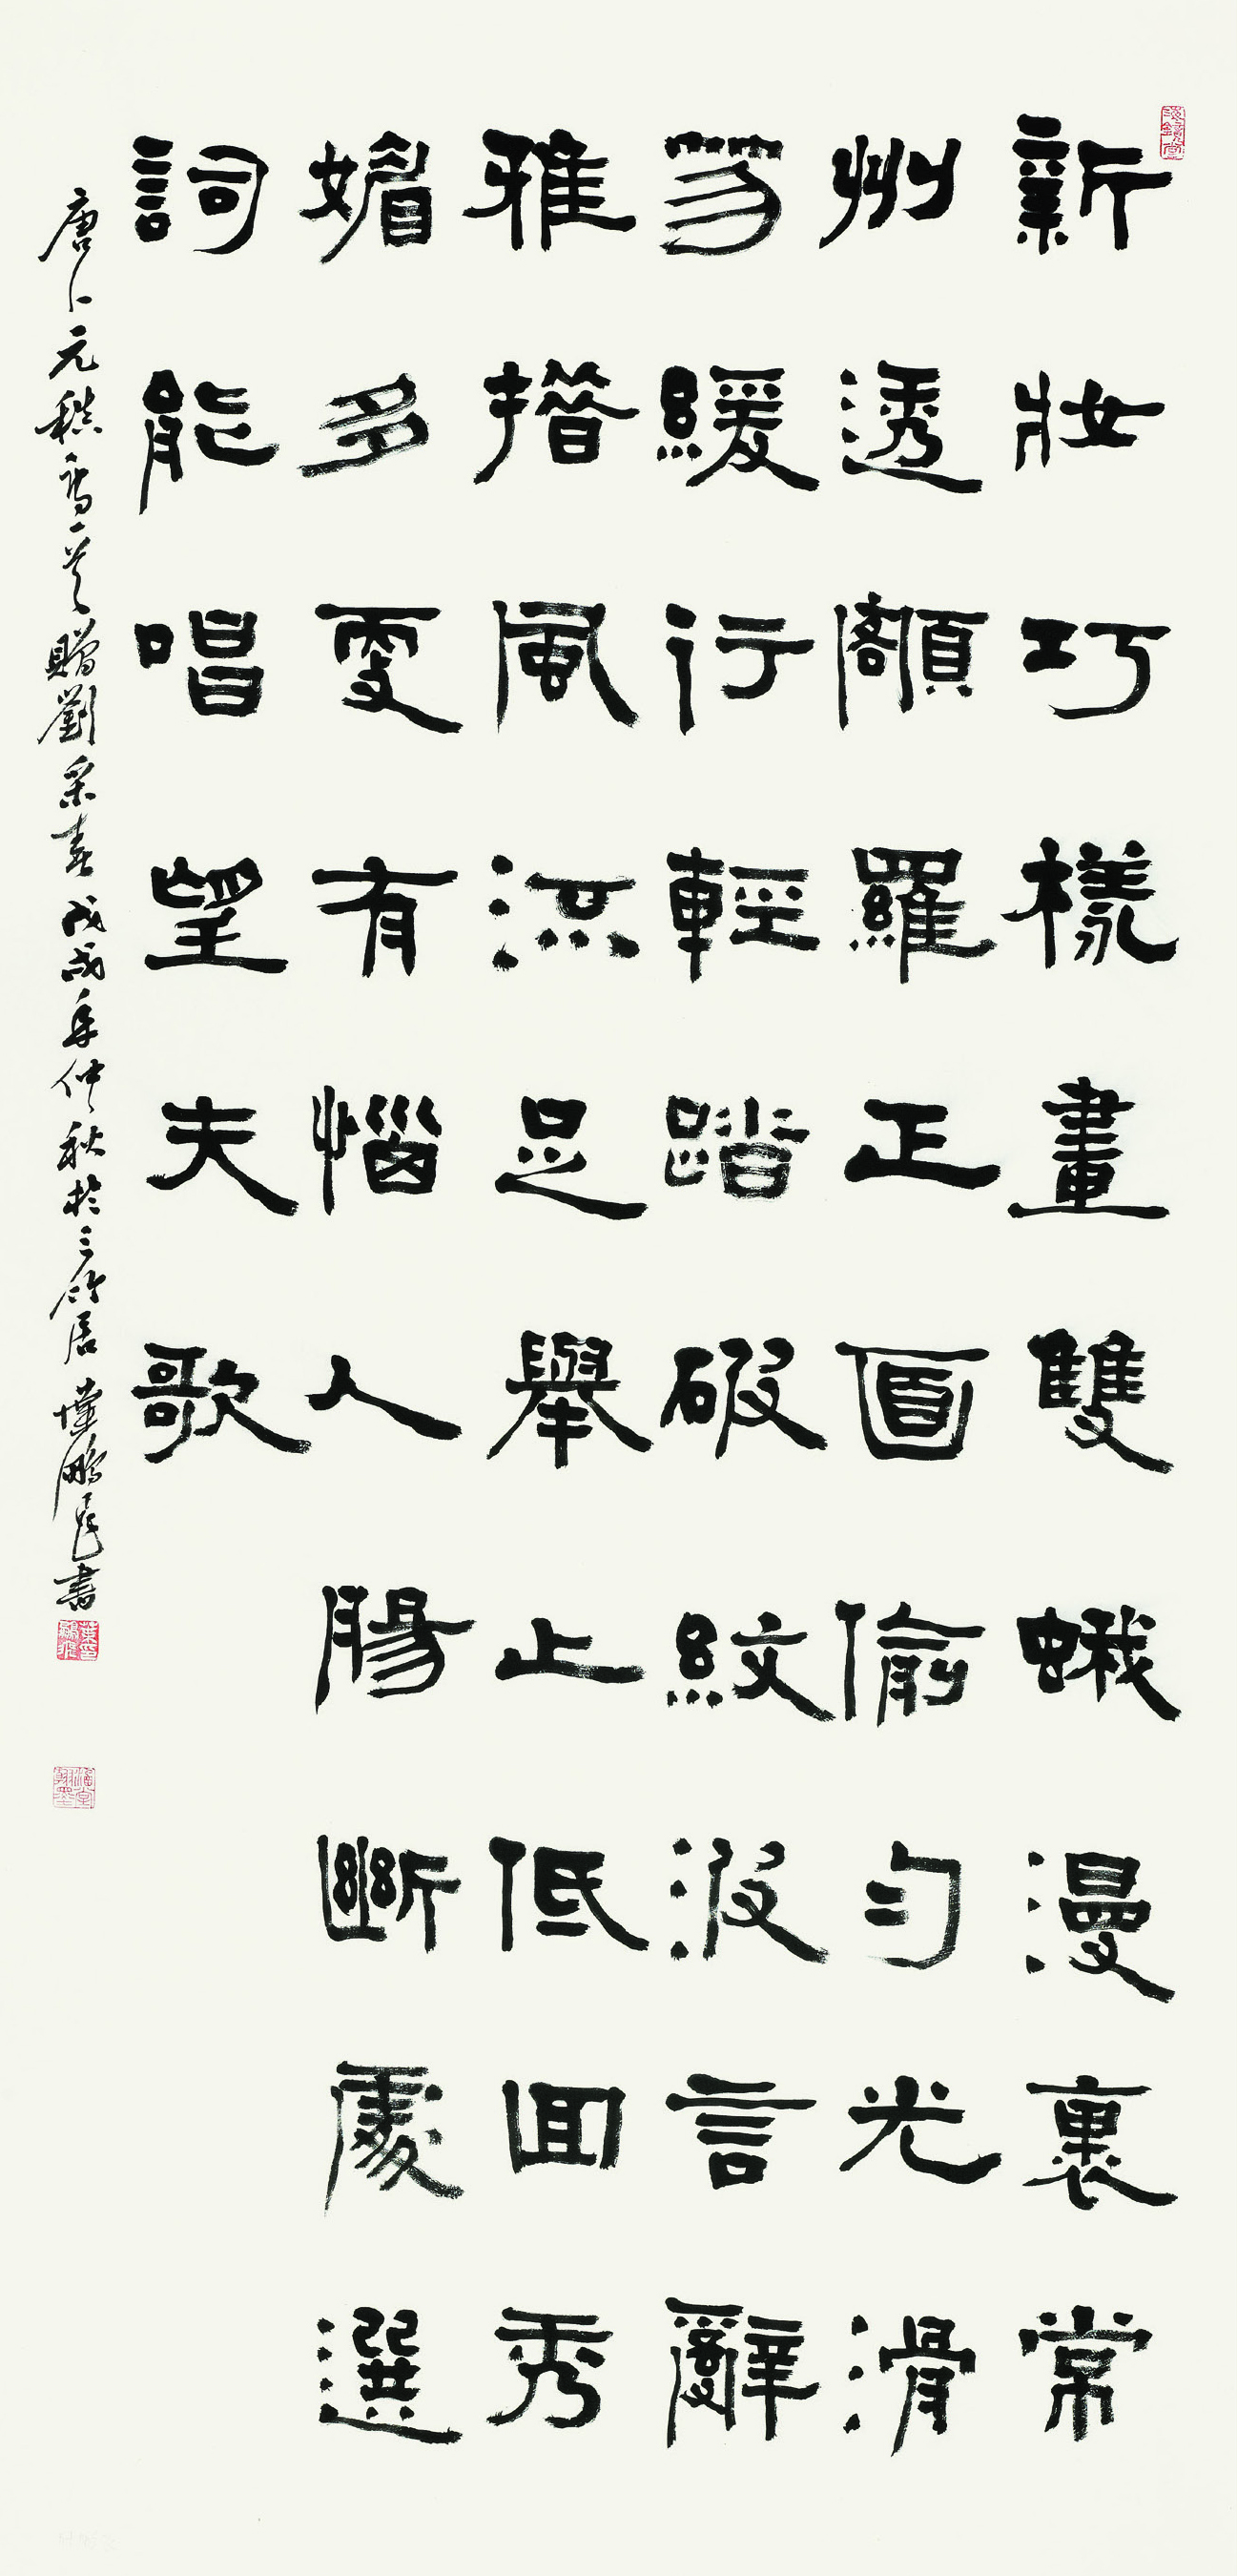 新妝巧樣畫雙蛾漫裹常
州透額羅正面偷勻光滑
笏緩行輕踏破紋波言辭
雅措風流足舉止低回秀
媚多更有惱人腸斷處選
詞能唱望夫歌
唐人元稹詩一首贈劉采春 戊戌年仲秋於三竹居 鵬飛書